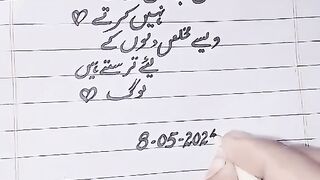 نہیں کرتے ♡
ویسے مخلص دلوں کے
لیئے ترستے ہیں
لوگ ♡
8-05-2024